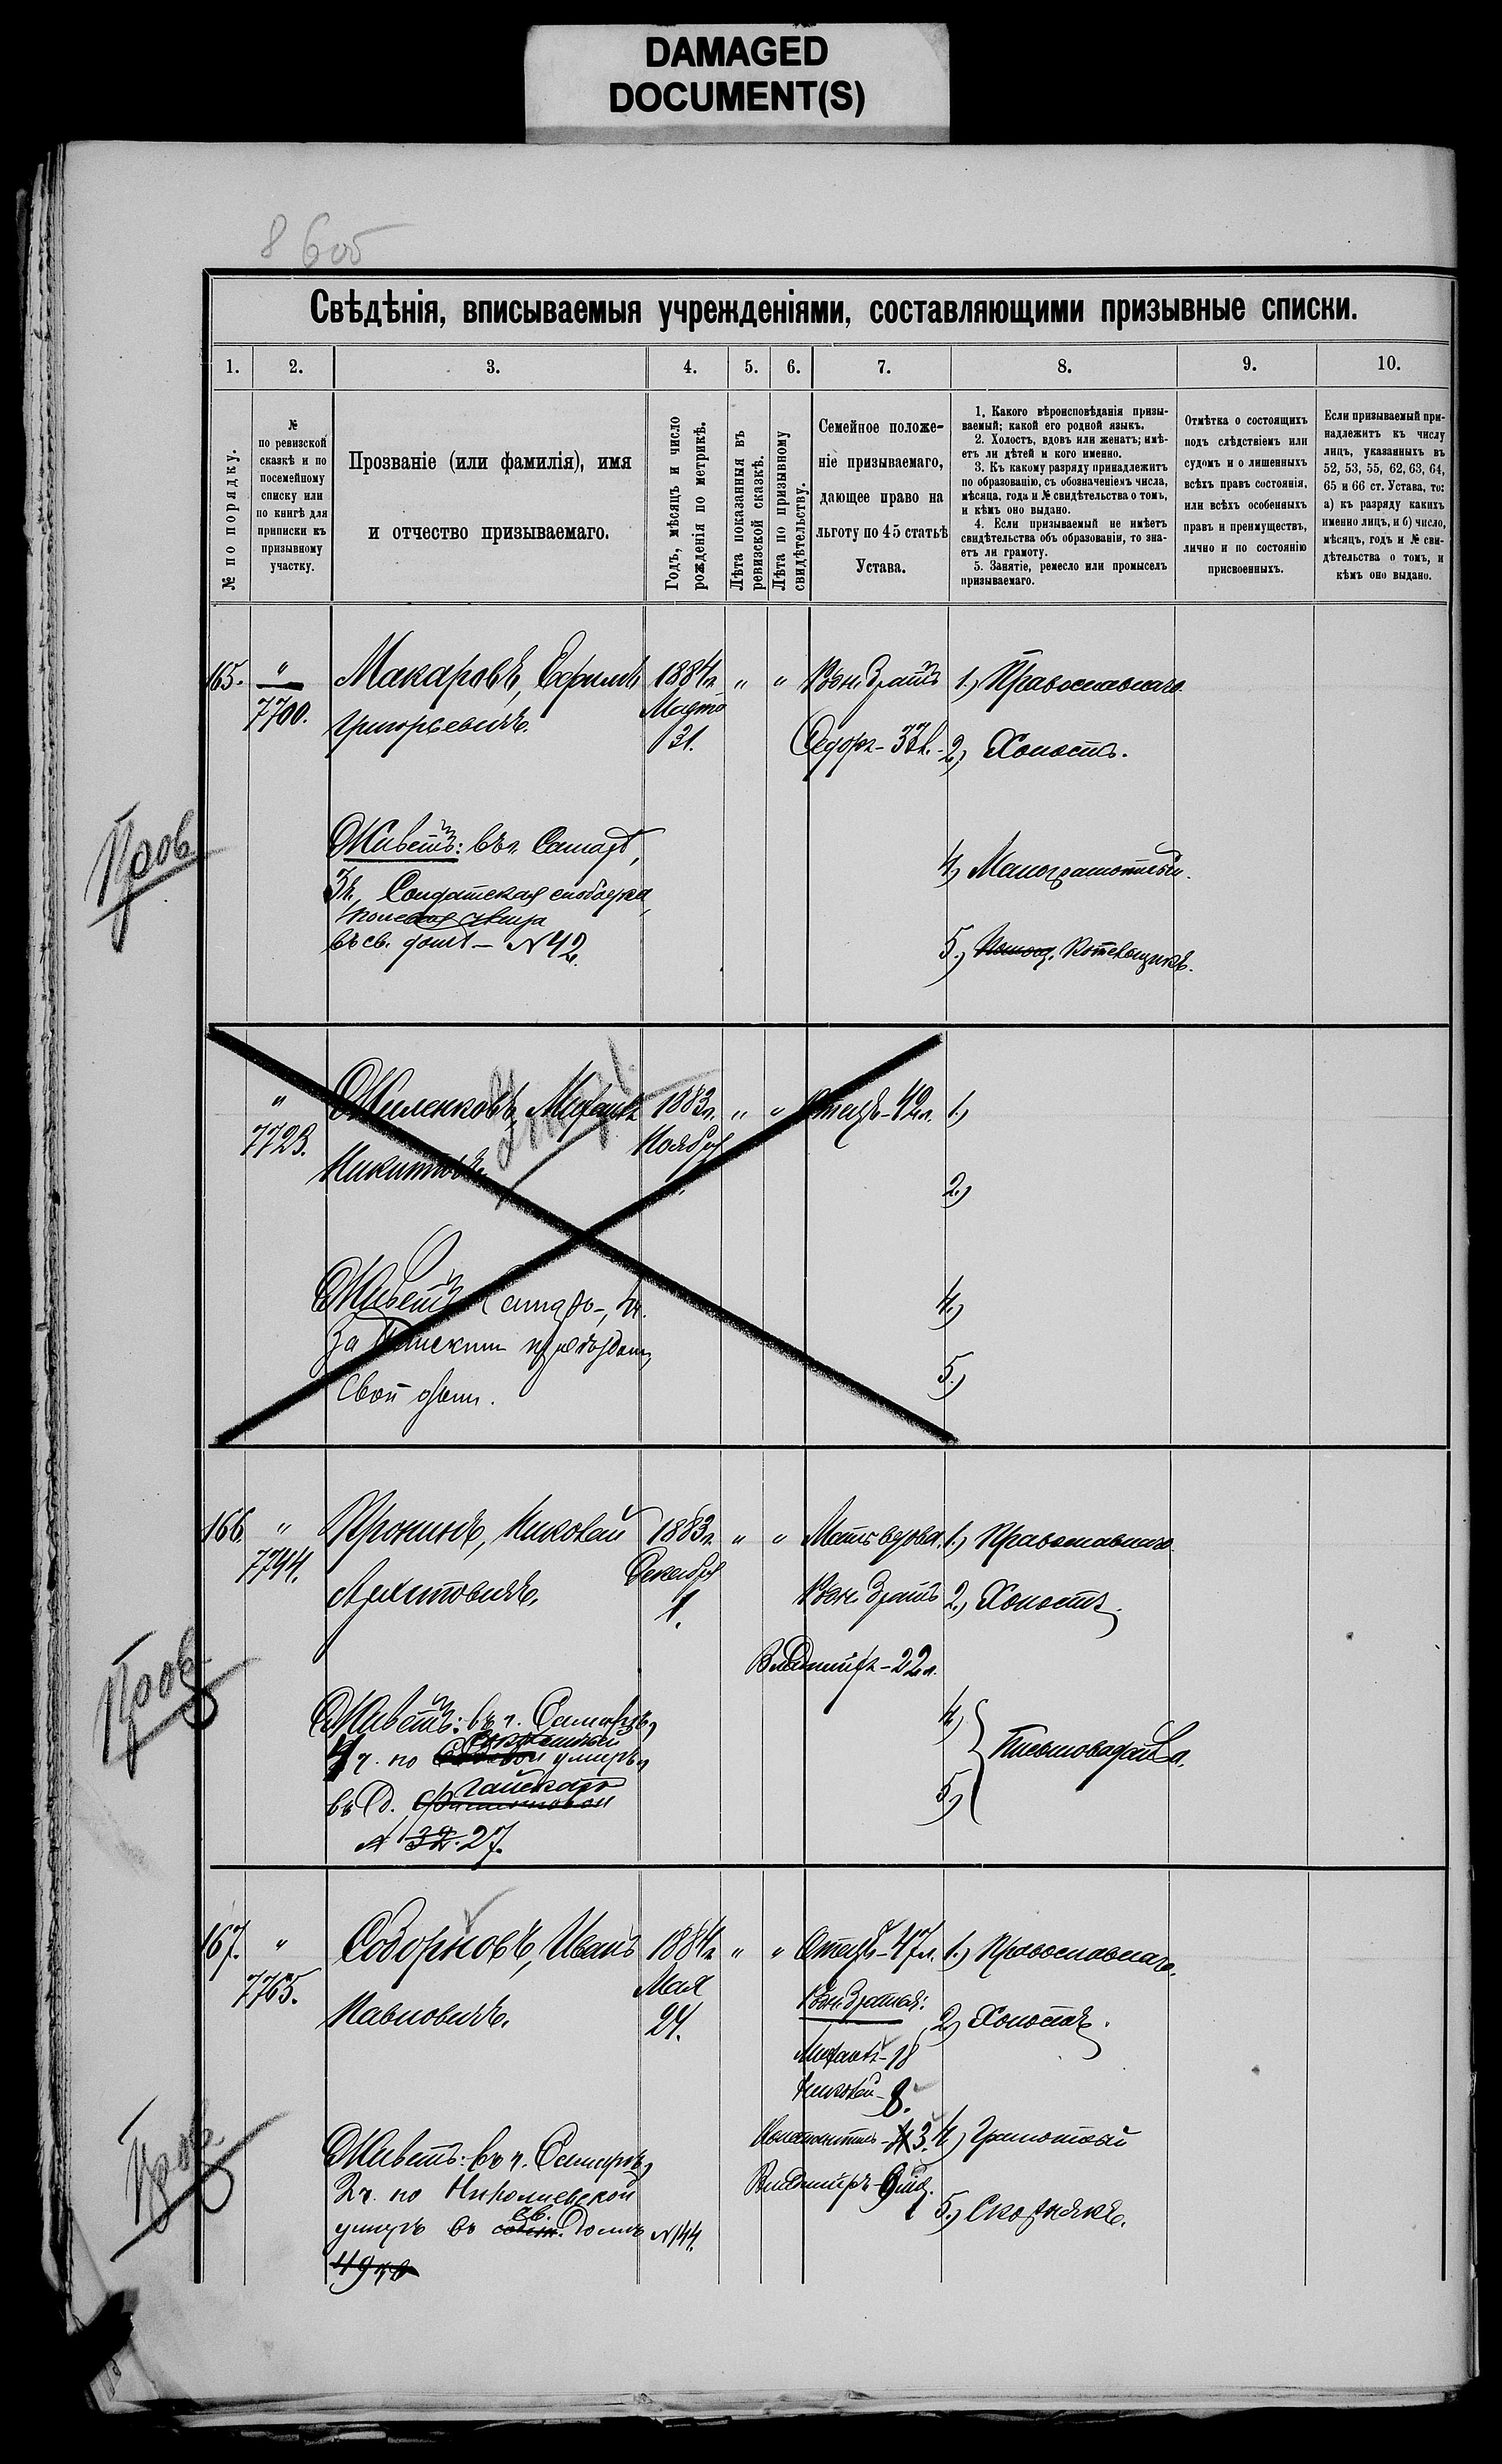 DAMAGED
DOCUMENT(S)
86об
Свѣдѣнія, вписываемыя учрежденіями, составляющими призывные списки.
1. 2. 3. 4. 5. 6. 7. 8. 9. 10.
№ по порядку.
№
по ревизской
сказкѣ и по
посемейному
списку или
по книгѣ для
приписки къ
призывному
участку.
Прозваніе (или фамилія), имя
и отчество призываемаго.
Годъ, мѣсяцъ и число
рожденія по метрикѣ.
Лѣта показанныя въ
ревизской сказкѣ.
Лѣта по призывному
свидѣтельству.
Семейное положе-
ніе призываемаго,
дающее право на
льготу по 45 статьѣ
Устава.
1. Какого вѣроисповѣданія призы-
ваемый; какой его родной языкъ.
2. Холостъ, вдовъ или женатъ; имѣ-
етъ ли дѣтей и кого именно.
3. Къ какому разряду принадлежитъ
по образованію, съ обозначеніемъ числа,
мѣсяца, года и № свидѣтельства о томъ,
и кѣмъ оно выдано.
4. Если призываемый не имѣетъ
свидѣтельства объ образованіи, то зна-
етъ ли грамоту.
5. Занятіе, ремесло или промыселъ
призываемаго.
Отмѣтка о состоящихъ
подъ слѣдствіемъ или
судомъ и о лишенныхъ
всѣхъ правъ состоянія,
или всѣхъ особенныхъ
правъ и преимуществъ,
лично и по состоянію
присвоенныхъ.
Если призываемый при-
надлежитъ къ числу
лицъ, указанныхъ въ
52, 53, 55, 62, 63, 64,
65 и 66 ст. Устава, то:
а) къ разряду какихъ
именно лицъ, и б) число,
мѣсяцъ, годъ и № сви-
дѣтельства о томъ, и
кѣмъ оно выдано.
165. " Макаровъ, Ефимъ 1884 г. " " Родн. братъ 1.) Православнаго.
7700. Григорьевичъ. Марта
31. Федоръ - 33 л. 2.) Холостъ.
Пров.
Живетъ: въ г. Самарѣ,
3 ч. Солдатская слободка,
въ св. домѣ - № 42.
4.) Малограмотный.
5.) Котельщикъ.
" Жиленковъ, Михаилъ 1883 г. " " Отецъ - 42 л. 1.)
умеръ
7723. Никитовъ Ноября
2.)
Живетъ Самарѣ, 4 ч.
За
Свой домъ.
4.)
5.)
166. " Пронинъ, Николай 1883 г. " " Мать вдова. 1.) Православнаго.
7744. Декабря
1. Родн. братъ 2.) Холостъ.
Владиміръ - 22 л.
Пров.
Живетъ: въ г. Самарѣ,
4 ч. по улицѣ,
въ д.
№ 32. 27.
4.)
5.) Письмоводит.
167. " Содорновъ, Иванъ 1884 г. " " Отецъ - 47 л. 1.) Православнаго.
7765. Павловичъ. Мая
24. Родн. братья: 2.) Холостъ.
Михаилъ - 18
Николай - 8.
Константинъ - 3. 4.) Грамотный
Владиміръ - 9 мѣс.
5.) Скорнякъ.
Пров.
Живетъ: въ г. Самарѣ,
2 ч. по Николаевской
улицѣ въ св. домѣ № 144.